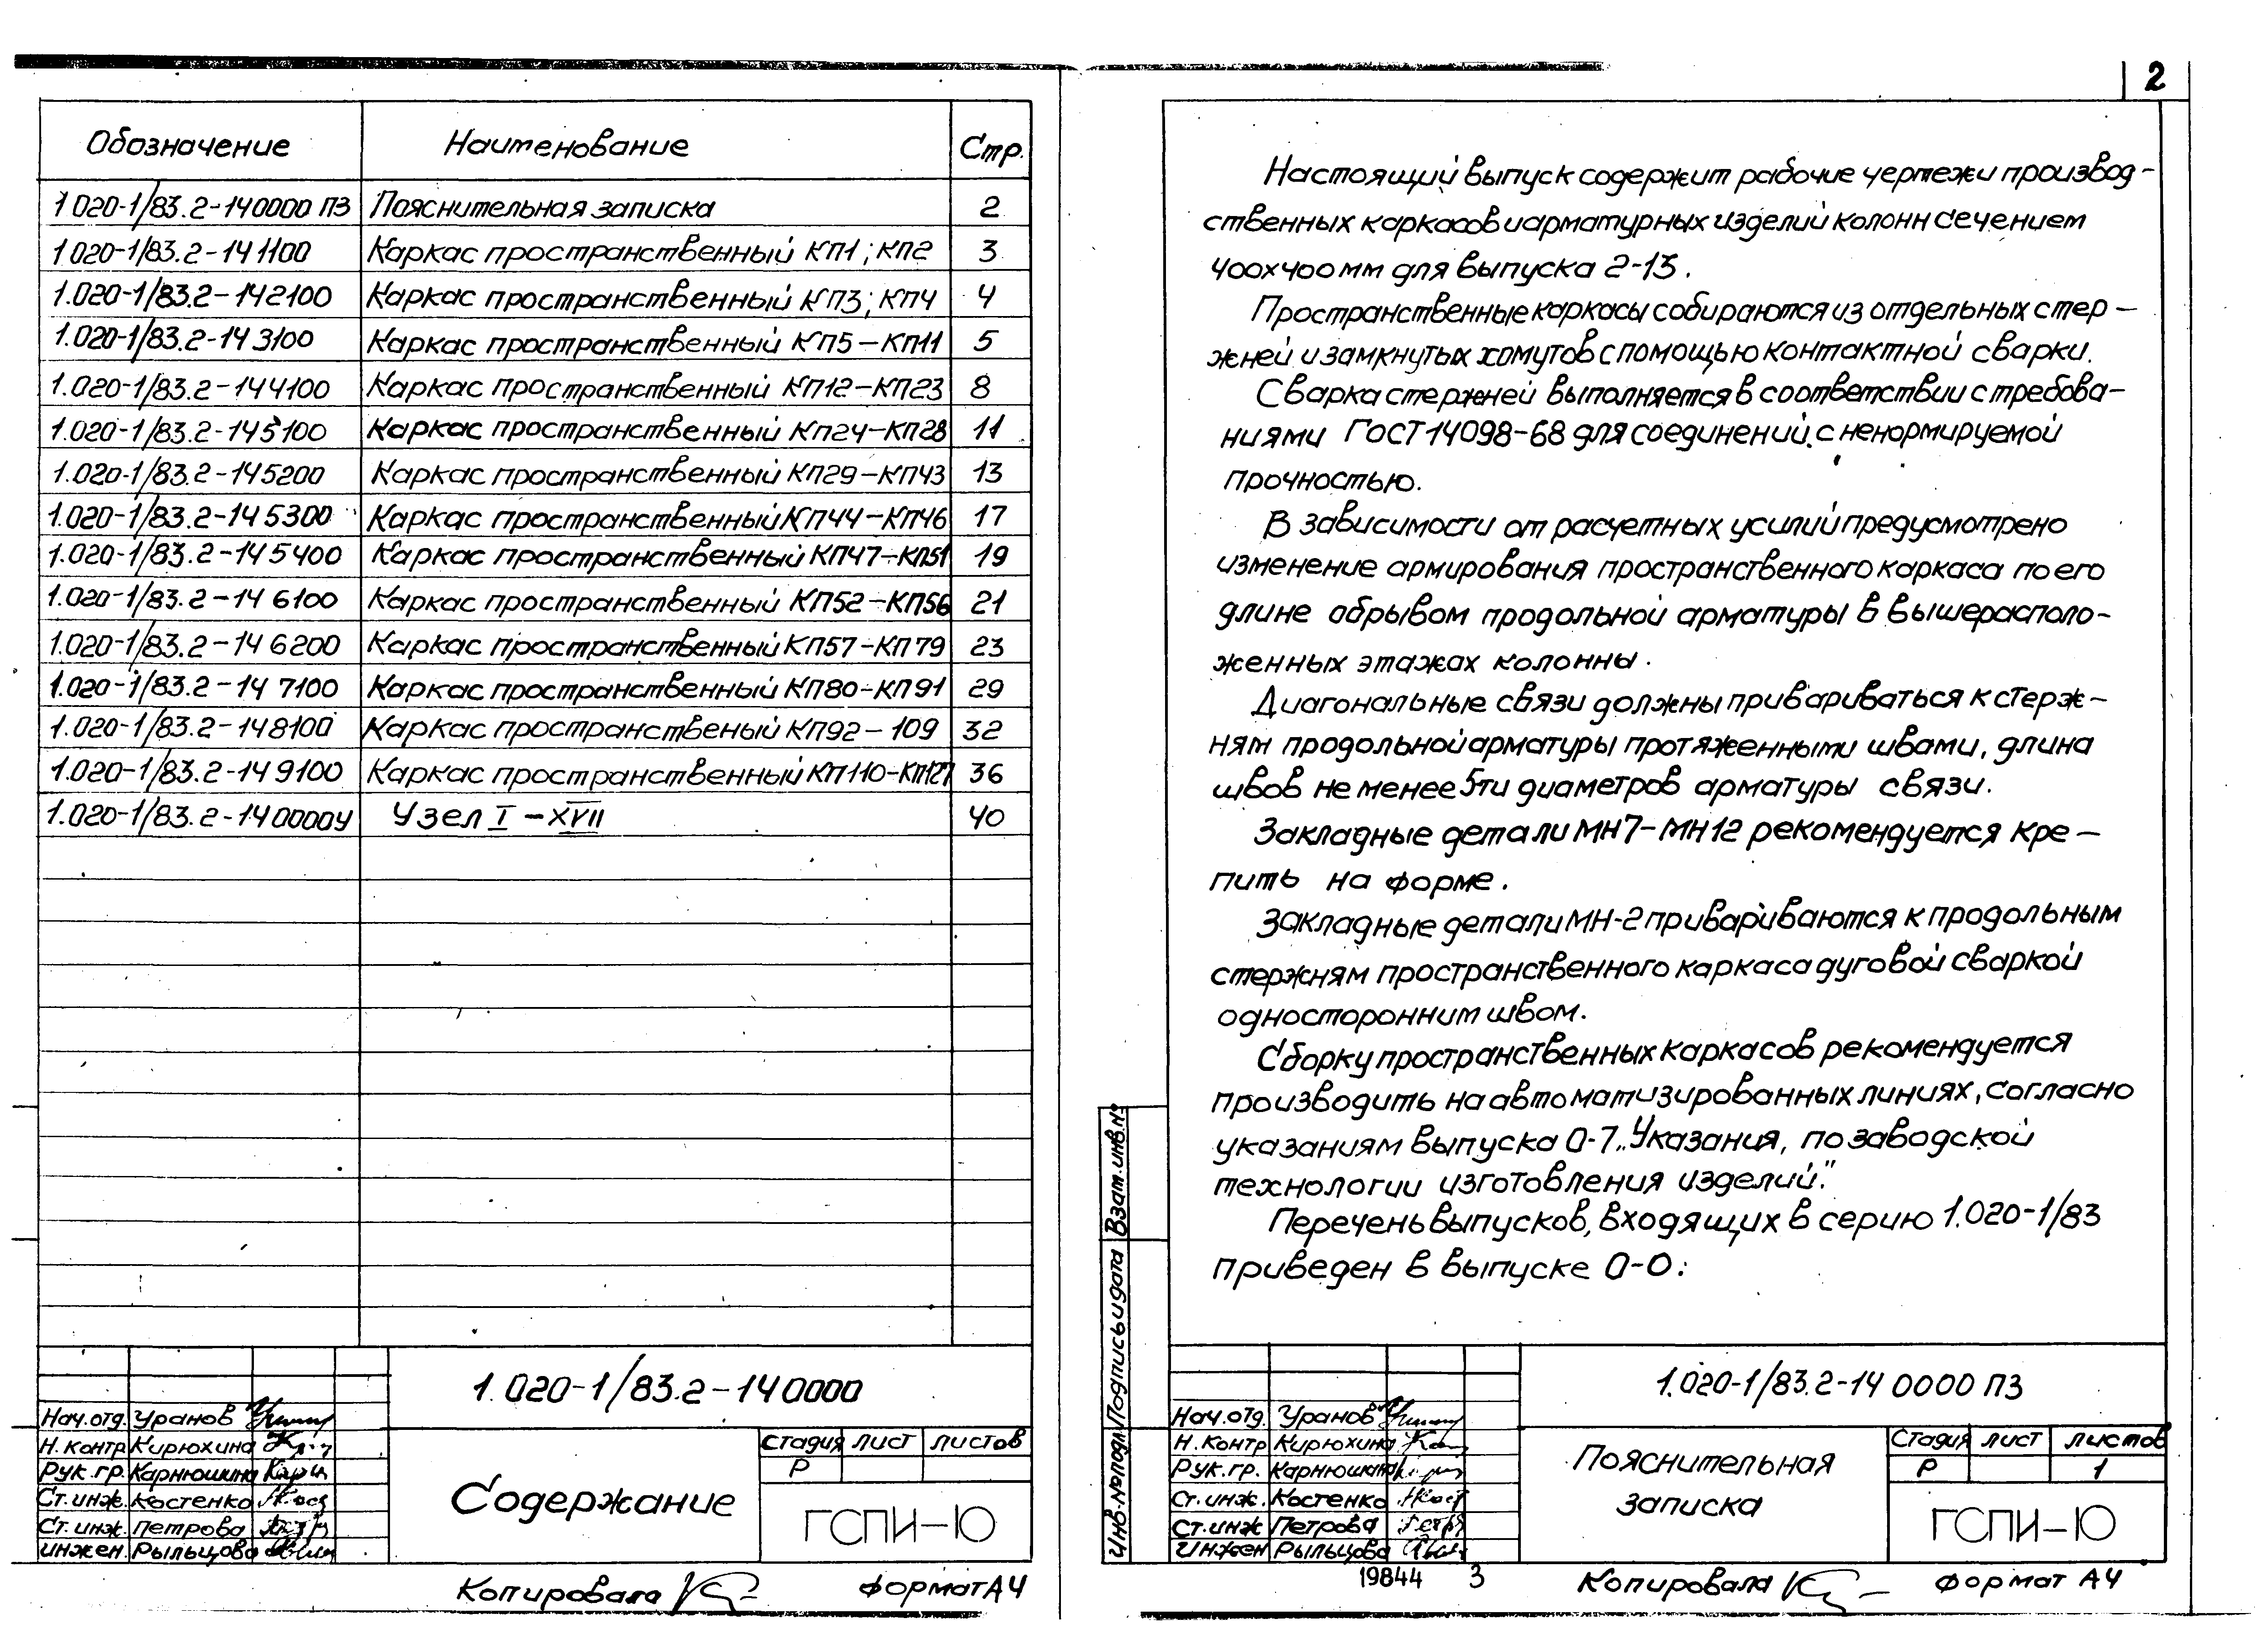 2
Обозначение Наименование Стр.
1.020-1/83.2-140000 ПЗ Пояснительная записка 2
1.020-1/83.2-141100 Каркас пространственный КП1; КП2 3
1.020-1/83.2-142100 Каркас пространственный КП3; КП4 4
1.020-1/83.2-143100 Каркас пространственный КП5-КП11 5
1.020-1/83.2-144100 Каркас пространственный КП12-КП23 8
1.020-1/83.2-145100 Каркас пространственный КП24-КП28 11
1.020-1/83.2-145200 Каркас пространственный КП29-КП43 13
1.020-1/83.2-145300 Каркас пространственный КП44-КП46 17
1.020-1/83.2-145400 Каркас пространственный КП47-КП51 19
1.020-1/83.2-146100 Каркас пространственный КП52-КП56 21
1.020-1/83.2-146200 Каркас пространственный КП57-КП79 23
1.020-1/83.2-147100 Каркас пространственный КП80-КП91 29
1.020-1/83.2-148100 Каркас пространственый КП92-109 32
1.020-1/83.2-149100 Каркас пространственный КП110-КП127 36
1.020-1/83.2-140000У Узел I-XVII 40
1.020-1/83.2-140000
Нач.отд. Уранов
Н.контр Кирюхина
Рук.гр. Карнюшина
Ст.инж. Костенко
Ст.инж. Петрова
инжен. Рыльцова
Содержание
Стадия лист листов
Р
ГСПИ-Ю
Копировала формат А4
Настоящий выпуск содержит рабочие чертежи производ-
ственных каркасов и арматурных изделий колонн сечением
400х400 мм для выпуска 2-13.
Пространственные каркасы собираются из отдельных стер-
жней и замкнутых хомутов с помощью контактной сварки.
Сварка стержней выполняется в соответствии с требова-
ниями ГОСТ 14098-68 для соединений с ненормируемой
прочностью.
В зависимости от расчетных усилий предусмотрено
изменение армирования пространственного каркаса по его
длине обрывом продольной арматуры в вышерасполо-
женных этажах колонны.
Диагональные связи должны привариваться к стерж-
ням продольной арматуры протяженными швами, длина
швов не менее 5ти диаметров арматуры связи.
Закладные детали МН7-МН12 рекомендуется кре-
пить на форме.
Закладные детали МН-2 привариваются к продольным
стержням пространственного каркаса дуговой сваркой
односторонним швом.
Сборку пространственных каркасов рекомендуется
производить на автоматизированных линиях, согласно
указаниям выпуска 0-7 „Указания, по заводской
технологии изготовления изделий."
Перечень выпусков, входящих в серию 1.020-1/83
приведен в выпуске 0-0.
Инв.№подл. Подпись и дата Взам.инв.№
1.020-1/83.2-14 0000 ПЗ
Нач.отд. Уранов
Н.контр Кирюхина
Рук.гр. Карнюшина
Ст.инж. Костенко
Ст.инж Петрова
Инжен Рыльцова
Пояснительная
записка
Стадия лист листов
Р 1
ГСПИ-Ю
19844 3
Копировала формат А4